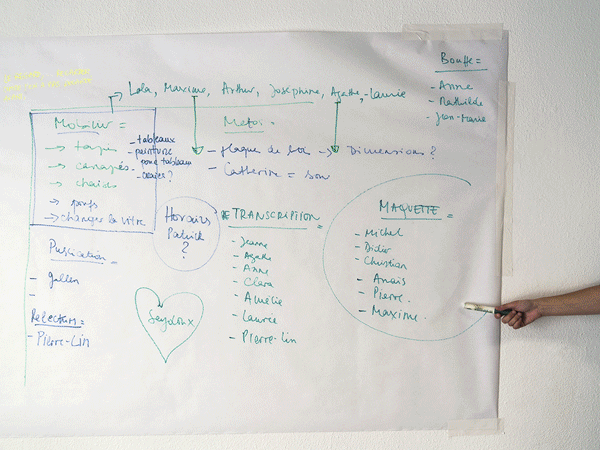 Bouffe =
- Anne
- Mathilde
- Jean-Marie
Lola, Maxime, Arthur, Joséphine, Agathe, - Laurie
Mobilier =
→ tapis
→ canapés
→ chaises
→ poufs
→ changer la vitre
- tableaux
- peinture
pour tableau
Matos =
- plaque de bois → Dimensions ?
- Catherine = son
Horaires
Patrick
?
Publication =
-
Relecteurs =
- Pierre-Lin
Seydoux
TRANSCRIPTION =
- Jeanne
- Agathe
- Anne
- Clara
- Amélie
- Laurie
- Pierre-Lin
MAQUETTE =
- Michel
- Didier
- Christian
- Anaïs
- Pierre
- Maxime